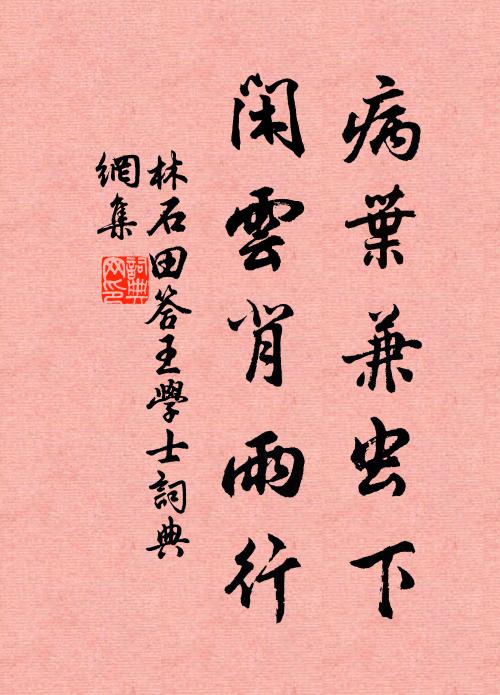 病葉兼虫下
閑雲背雨行
林石田答王學士詞典
網集
詞典網印